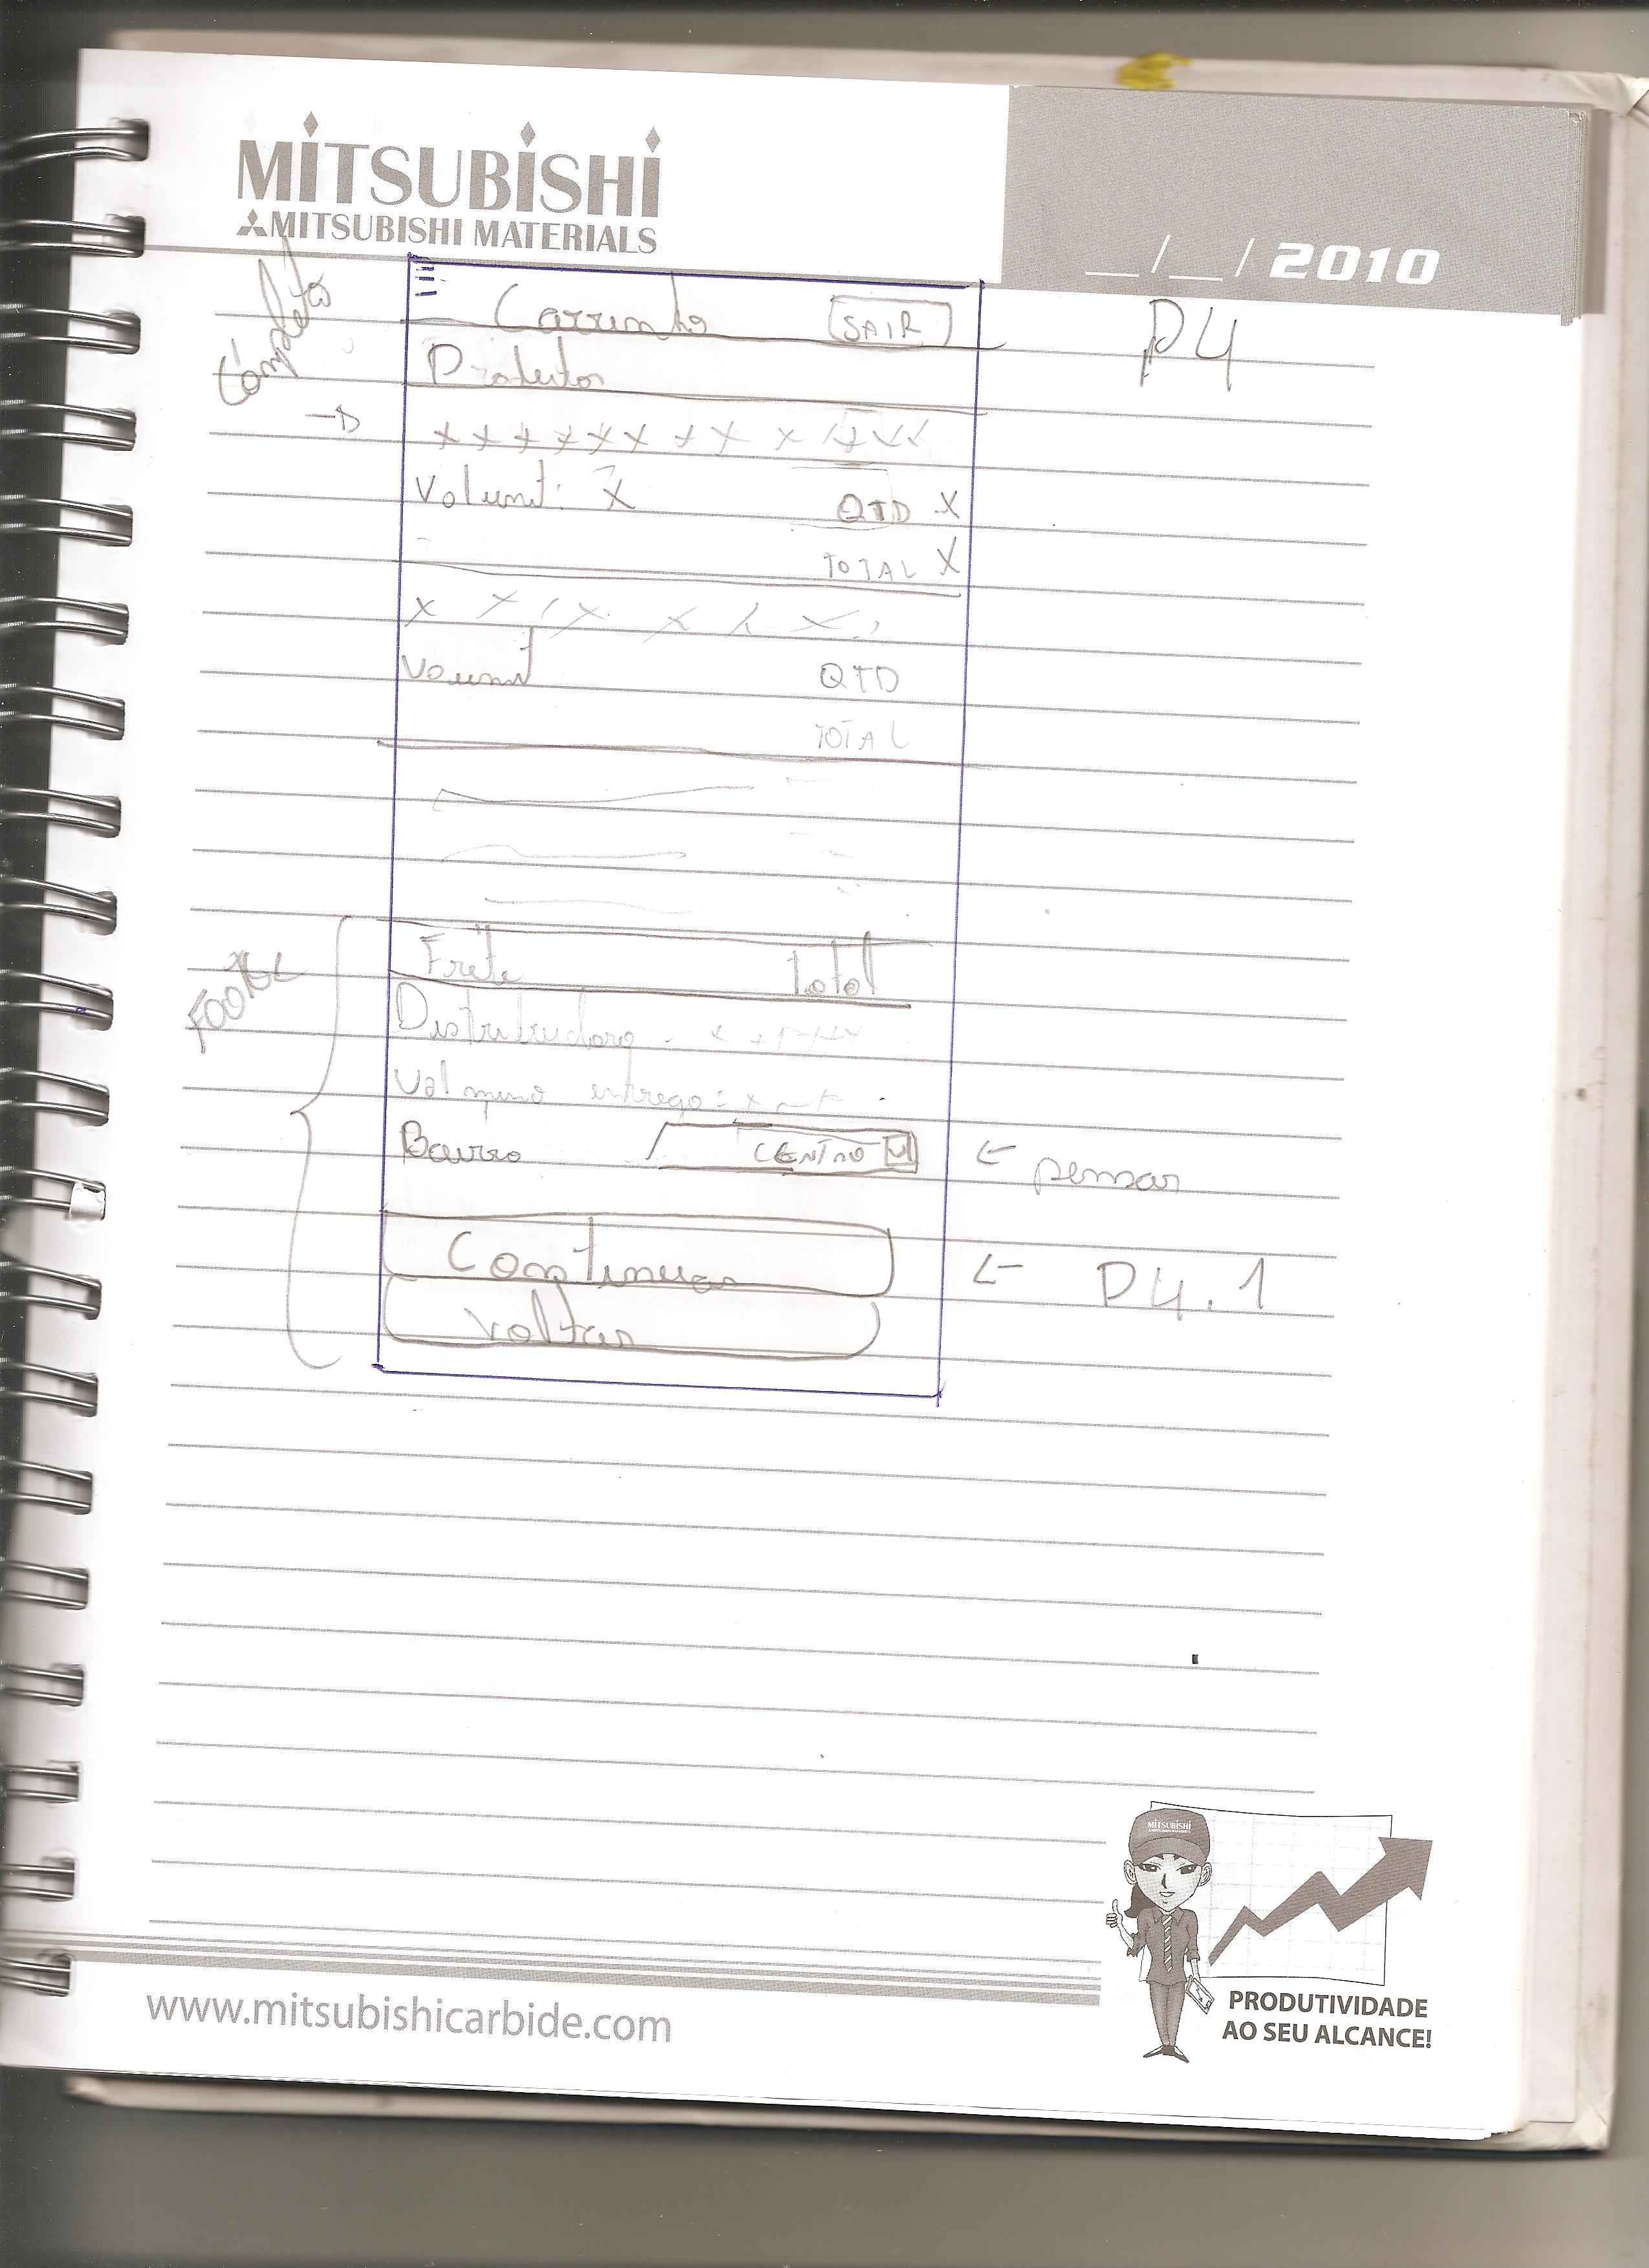 MITSUBISHI
MITSUBISHI MATERIALS
__/__/2010
P4
Completo
Carrinho SAIR
Produtos
x x x x x x x x x
Val unit: X QTD X
TOTAL X
x x x x x x
Val unit QTD
TOTAL
FOOTER
Frete Total
Distribuidora
Val minimo entrega:
Bairro CENTRO ← pensar
Continuar ← P4.1
Voltar
MITSUBISHI
www.mitsubishicarbide.com
PRODUTIVIDADE
AO SEU ALCANCE!